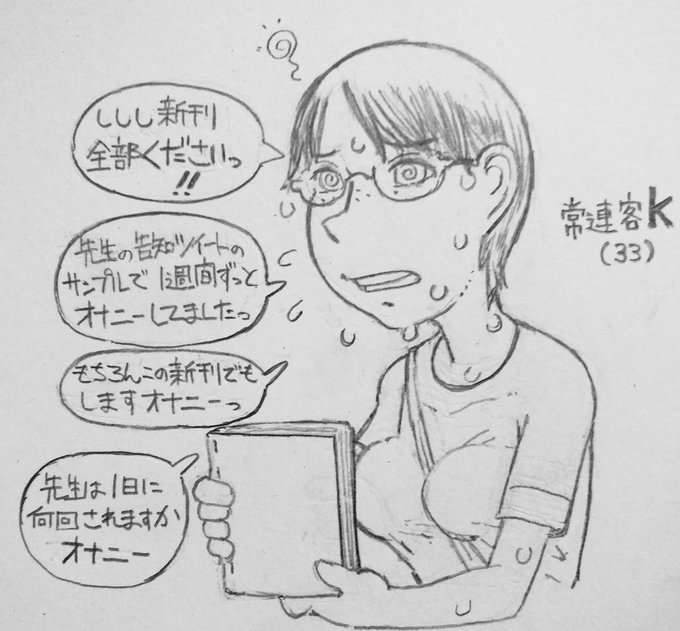 ししし新刊
全部くださいっ
!!
先生の告知ツイートの
サンプルで1週間ずっと
オナニーしてましたっ
もちろんこの新刊でも
しますオナニーっ
先生は1日に
何回されますか
オナニー
常連客K
(33)